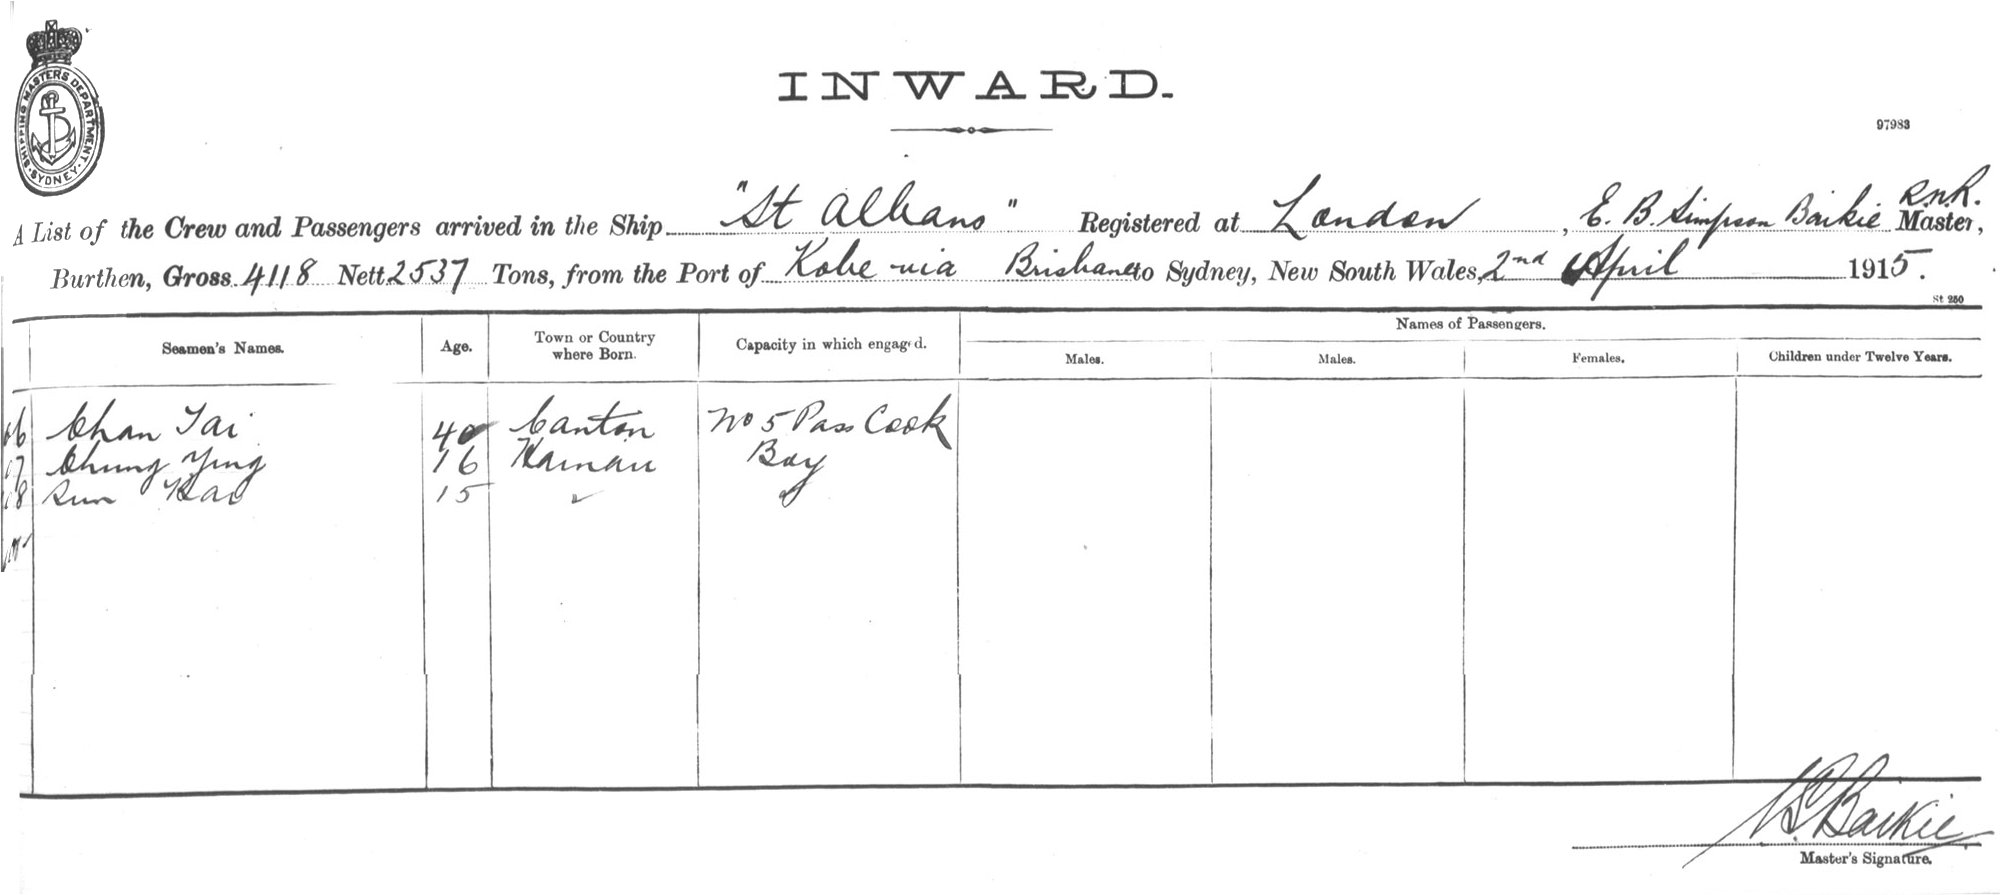 SHIPPING MASTERS DEPARTMENT. SYDNEY.
INWARD.
97983
A List of the Crew and Passengers arrived in the Ship "St Albans" Registered at London, E. B. Simpson Baikie R.N.R. Master,
Burthen, Gross 4118 Nett 2537 Tons, from the Port of Kobe via Brisbane to Sydney, New South Wales, 2nd April 1915.
St 250
Seamen's Names. Age. Town or Country where Born. Capacity in which engaged. Names of Passengers.
Males. Males. Females. Children under Twelve Years.
66 Chan Tai 40 Canton No 5 Pass Cook
67 Chung Ying 16 Hainan Boy
68 15
Baikie
Master's Signature.